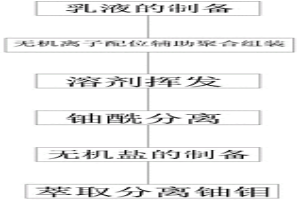 乳液的制备
无机离子配位辅助聚合组装
溶剂挥发
铀酰分离
无机盐的制备
萃取分离铀钼